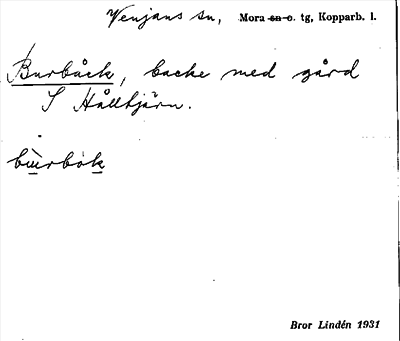 Venjans sn, Mora sn o. tg, Kopparb. l.
Burbåck, backe med gård
S Hålltjärn.
bùrbok
Bror Lindén 1931